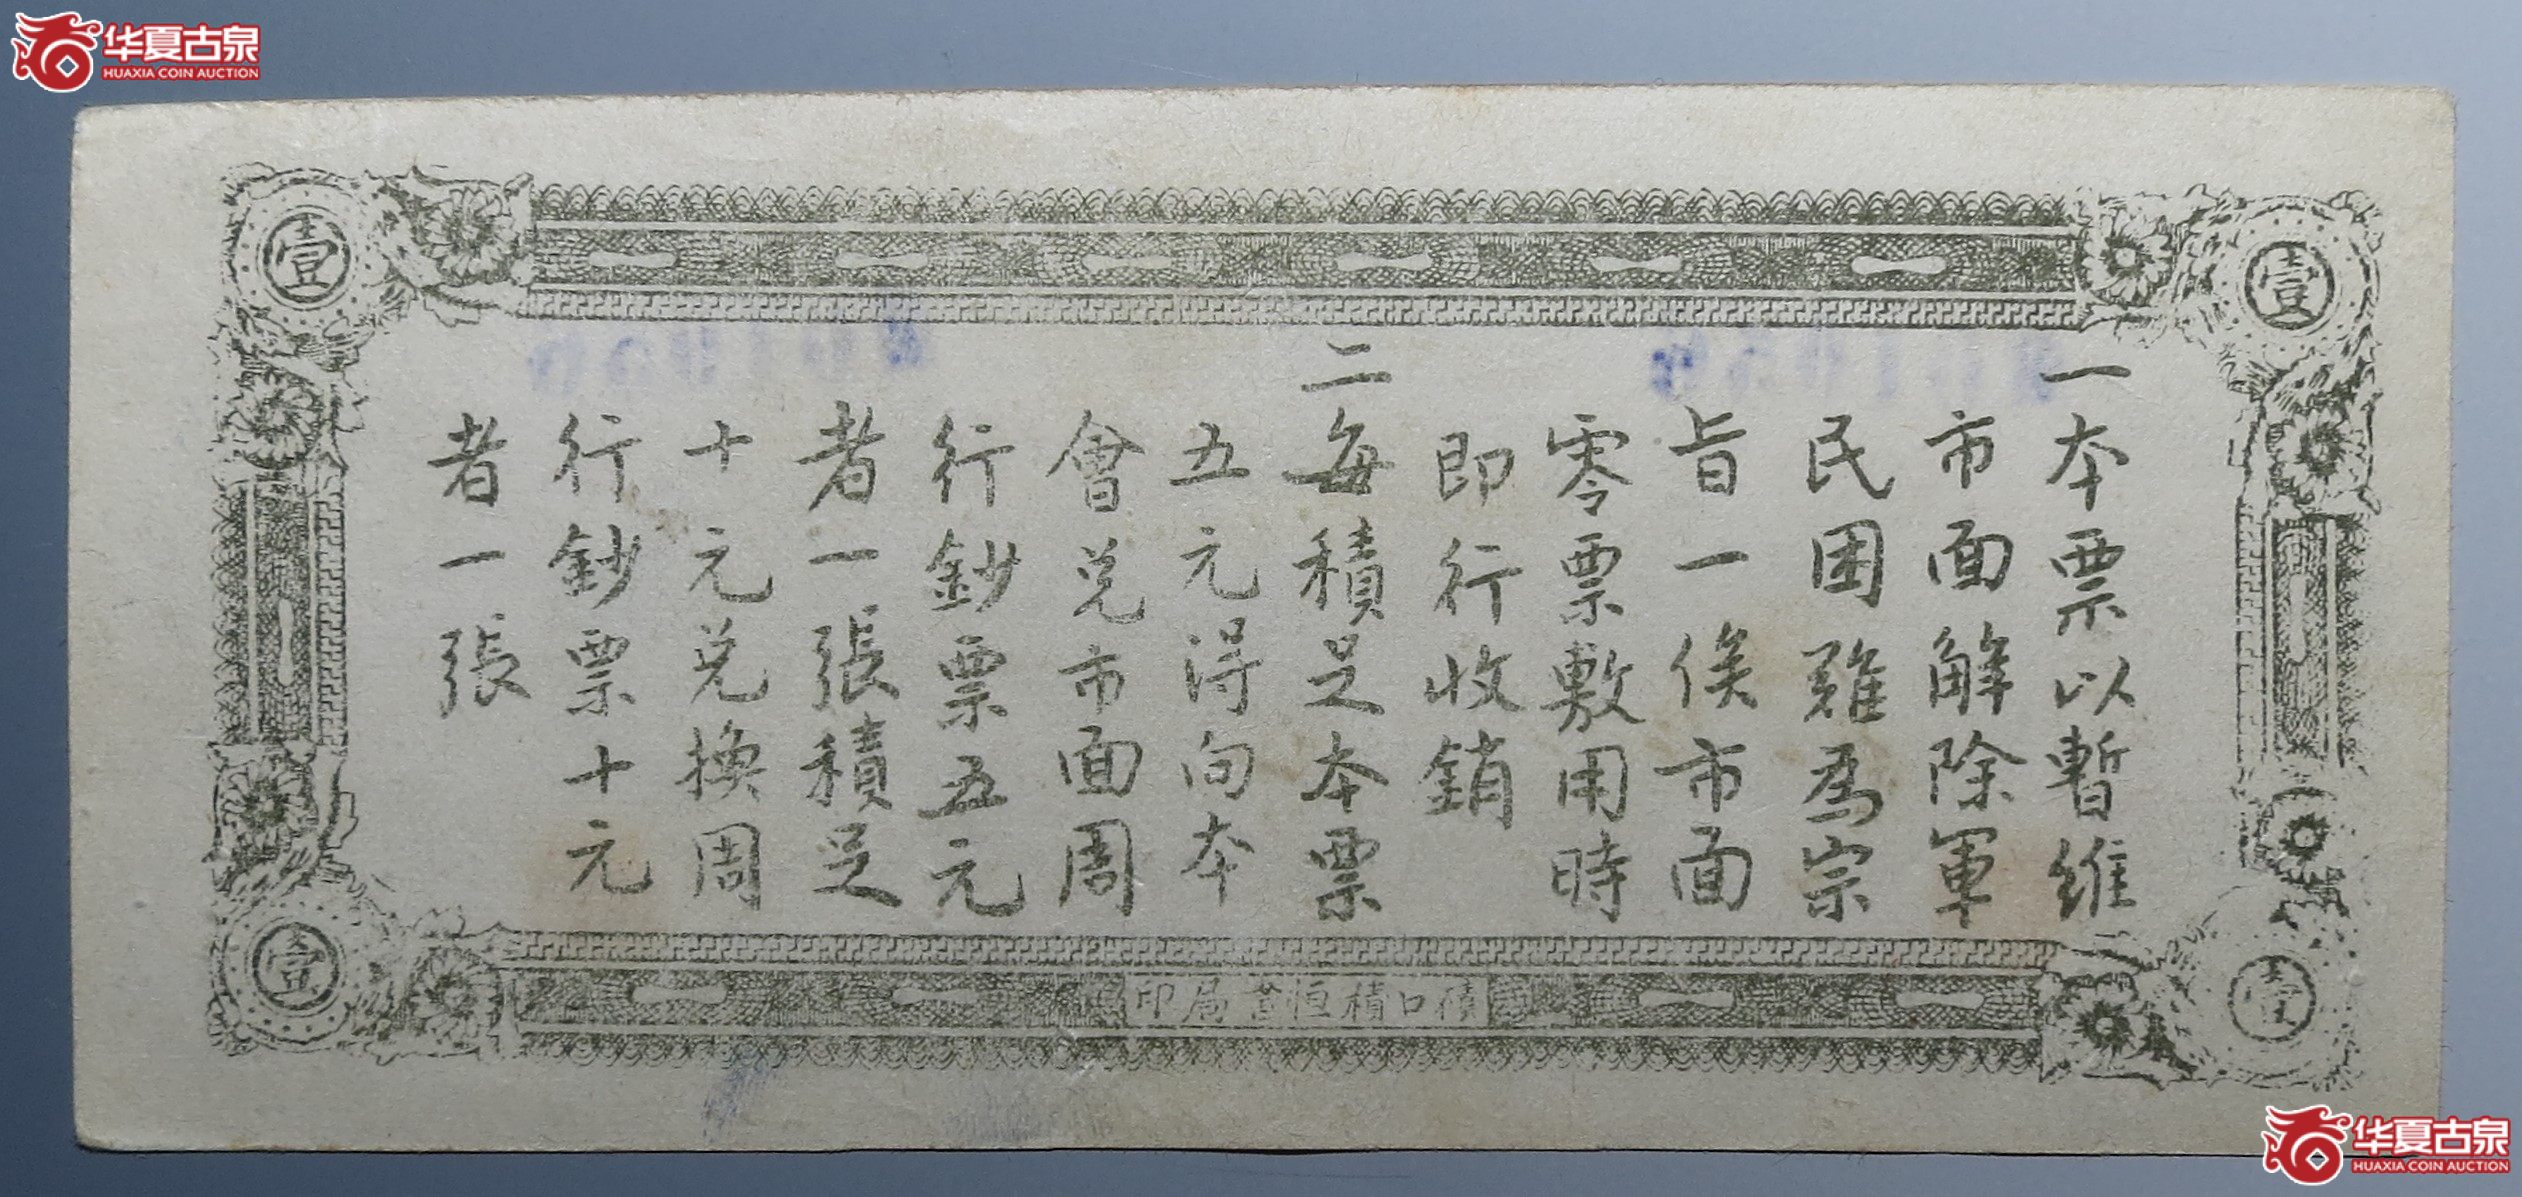 华夏古泉
HUAXIA COIN AUCTION
壹
壹
一本票以暫維
市面解除軍
民困難爲宗
旨一俟市面
零票敷用時
即行收銷
二每積足本票
五元得向本
會兑市面周
行鈔票五元
者一張積足
十元兑換周
行鈔票十元
者一張
壹
壹
磧口積恒當局印
华夏古泉
HUAXIA COIN AUCTION